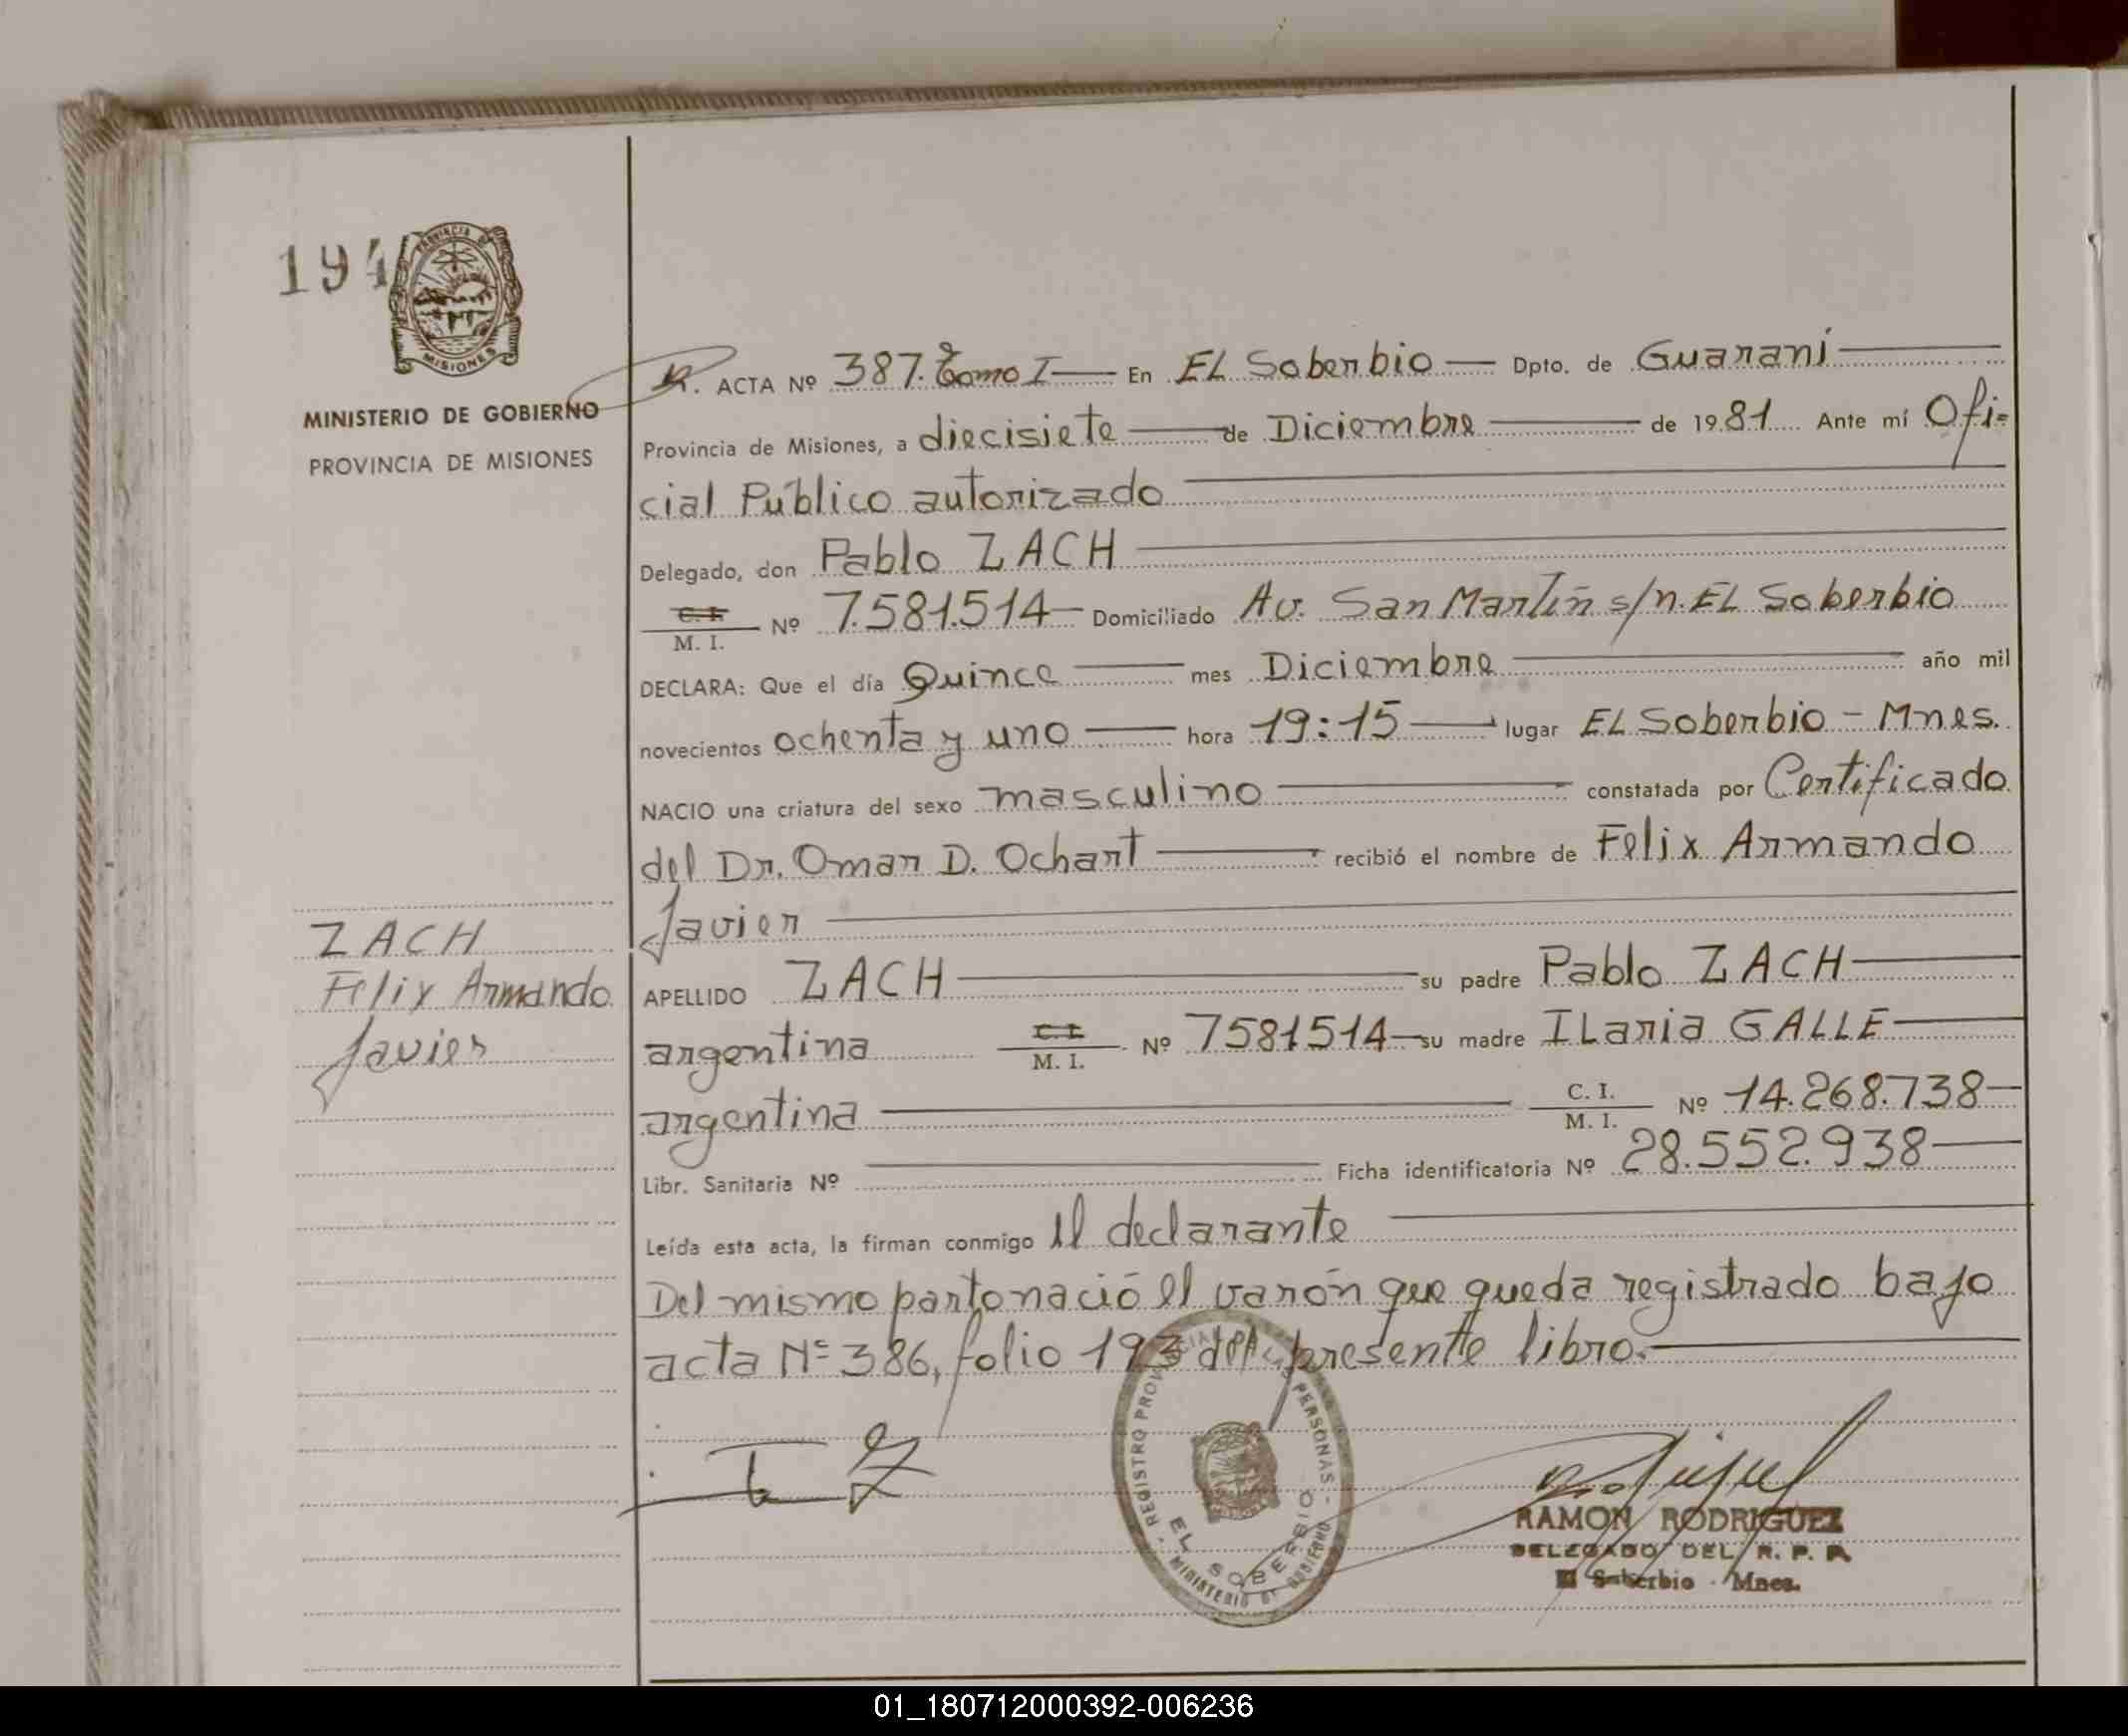 194
PROVINCIA DE
MISIONES
MINISTERIO DE GOBIERNO
PROVINCIA DE MISIONES
ACTA Nº 387. Tomo I En EL Soberbio Dpto. de Guaraní
Provincia de Misiones, a diecisiete de Diciembre de 1981 Ante mí Ofi=
cial Público autorizado
Delegado, don Pablo ZACH
C. I. / M. I. Nº 7.581.514 Domiciliado Av. San Martín s/n. EL Soberbio
DECLARA: Que el día Quince mes Diciembre año mil
novecientos ochenta y uno hora 19:15 lugar EL Soberbio - Mnes.
NACIO una criatura del sexo masculino constatada por Certificado
del Dr. Omar D. Ochart recibió el nombre de Felix Armando
Javier
APELLIDO ZACH su padre Pablo ZACH
argentina C. I. / M. I. Nº 7581514 su madre ILaria GALLE
argentina C. I. / M. I. Nº 14.268.738
Libr. Sanitaria Nº Ficha identificatoria Nº 28.552.938
Leída esta acta, la firman conmigo el declarante
Del mismo parto nació el varón que queda registrado bajo
acta Nº 386, folio 193 del presente libro.
ZACH
Felix Armando
Javier
REGISTRO PROVINCIAL DE LAS PERSONAS
EL SOBERBIO
MINISTERIO DE GOBIERNO
RAMON RODRIGUEZ
DELEGADO DEL R. P. P.
El Soberbio - Mnes.
01_180712000392-006236